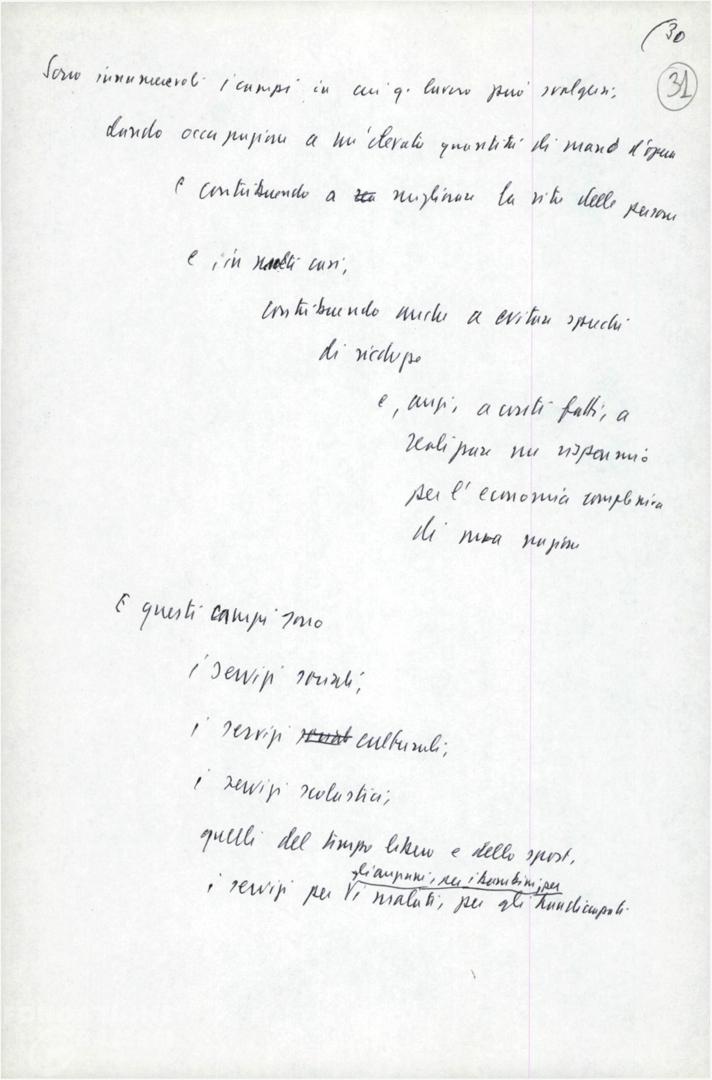 (30
31
Sono innumerevoli i campi in cui q. lavoro può svolgersi,
dando occupazione a un'elevata quantità di mano d'opera
e contribuendo a migliorare la vita delle persone
e, in molti casi,
contribuendo anche a evitare sprechi
di risorse
e, anzi, a conti fatti, a
realizzare un risparmio
per l'economia complessiva
di una nazione
E questi campi sono
i servizi sociali,
i servizi social culturali,
i servizi scolastici,
quelli del tempo libero e dello sport,
gli anziani, per i bambini, per
i servizi per i malati, per gli handicappati